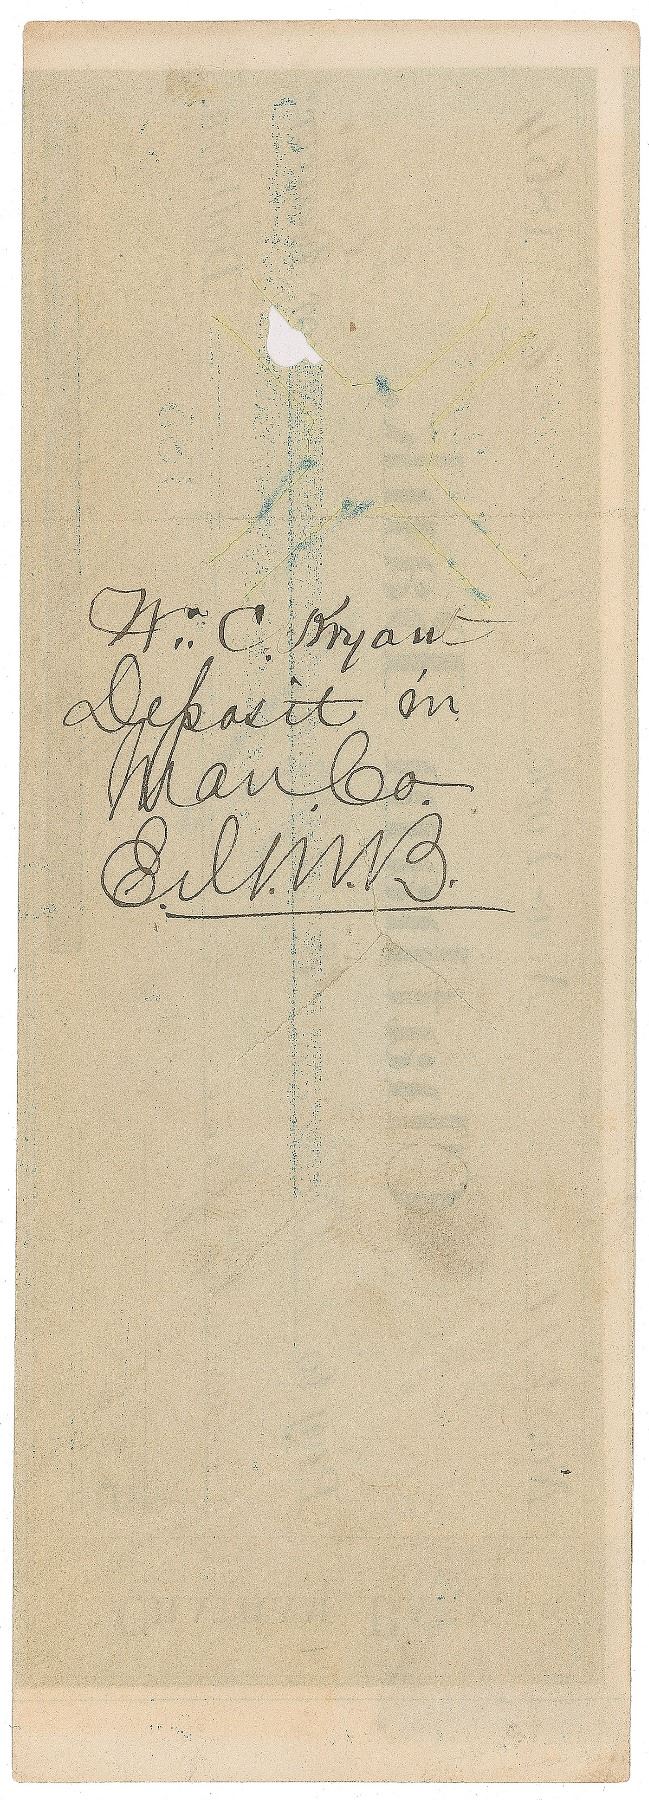 Wm. C. Bryant
Deposit in
Man. Co.